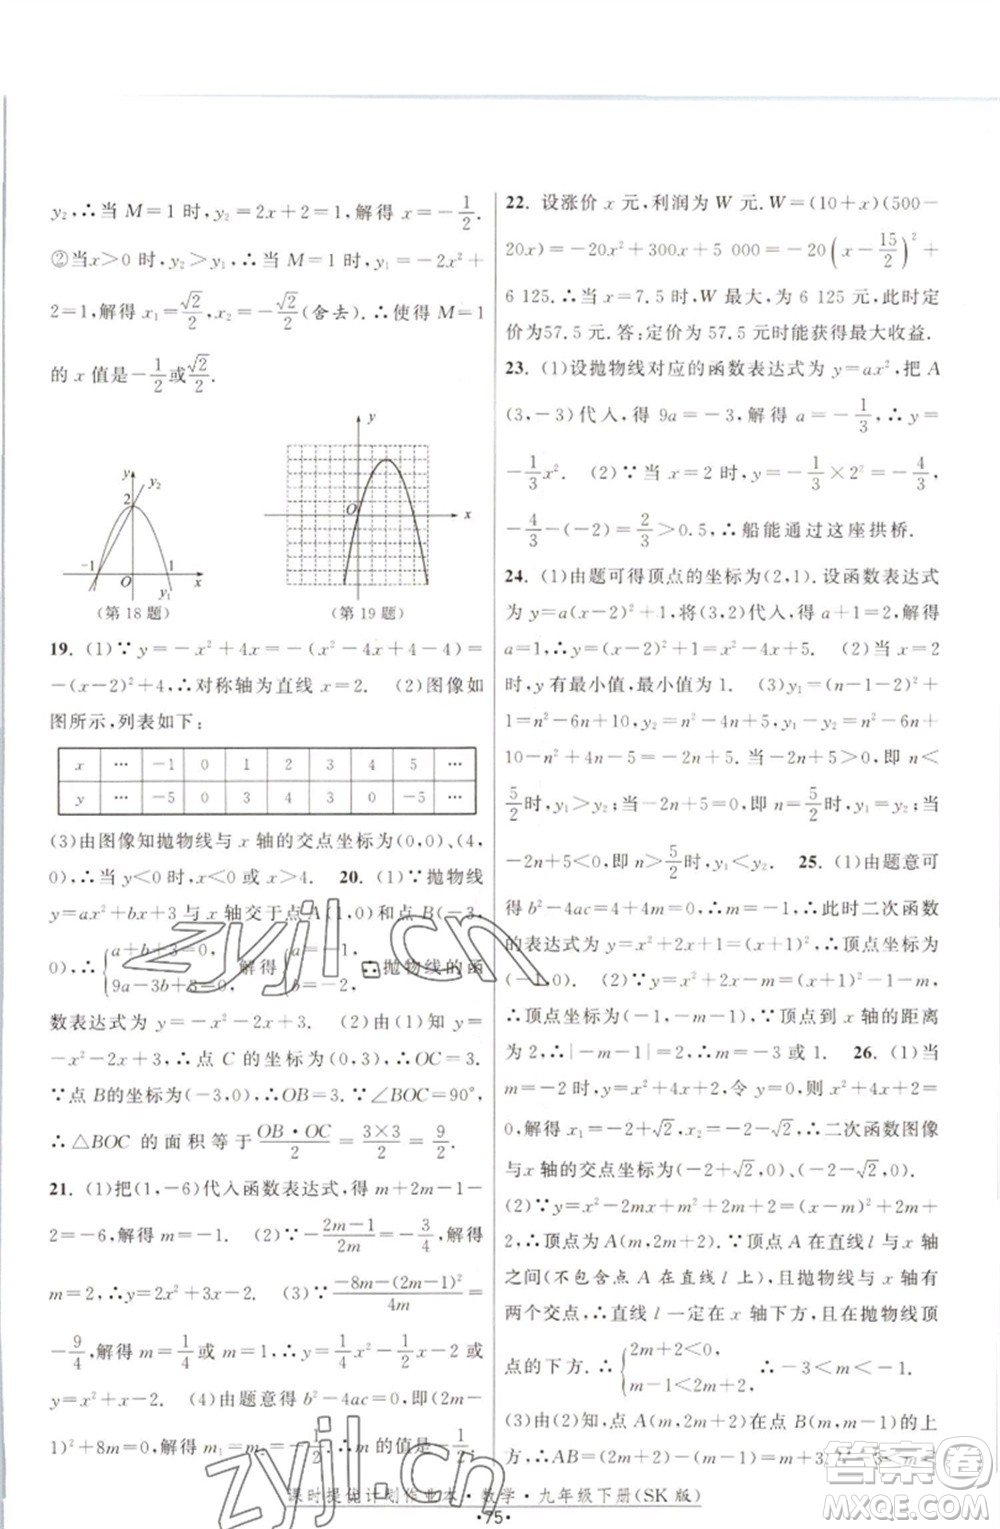 y₂,∴当 M=1 时,y₂=2x+2=1,解得 x=-1/2.
②当x>0 时,y₂>y₁,∴当 M=1 时,y₁=-2x²+
2=1,解得 x₁=√2/2,x₂=-√2/2(舍去).∴使得 M=1
的 x 值是-1/2或√2/2.
y
y₂
2
-1 O 1 x
y₁
(第 18 题)
y
O x
(第 19 题)
19. (1)∵y=-x²+4x=-(x²-4x+4-4)=
-(x-2)²+4,∴对称轴为直线 x=2. (2)图像如
图所示,列表如下:
x … -1 0 1 2 3 4 5 …
y … -5 0 3 4 3 0 -5 …
(3)由图像知抛物线与 x 轴的交点坐标为(0,0),(4,
0),∴当 y<0 时,x<0 或 x>4. 20. (1)∵抛物线
y=ax²+bx+3 与 x 轴交于点 A(1,0)和点 B(-3,
0),∴{a+b+3=0, 9a-3b+3=0, 解得{a=-1, b=-2, ∴抛物线的函
数表达式为 y=-x²-2x+3. (2)由(1)知 y=
-x²-2x+3,∴点 C 的坐标为(0,3),∴OC=3.
∵点 B的坐标为(-3,0),∴OB=3.∵∠BOC=90°,
∴△BOC 的面积等于OB·OC/2=3×3/2=9/2.
21. (1)把(1,-6)代入函数表达式,得 m+2m-1-
2=-6,解得 m=-1. (2)∵-(2m-1)/2m=-3/4,解得
m=2,∴y=2x²+3x-2. (3)∵(-8m-(2m-1)²)/4m=
-9/4,解得 m=1/4或 m=1,∴y=1/4x²-1/2x-2 或
y=x²+x-2. (4)由题意得 b²-4ac=0,即(2m-
1)²+8m=0,解得 m₁=m₂=-1/2,∴m 的值是-1/2.
22. 设涨价 x 元,利润为 W 元.W=(10+x)(500-
20x)=-20x²+300x+5 000=-20(x-15/2)²+
6 125.∴当 x=7.5 时,W 最大,为 6 125 元,此时定
价为57.5 元.答:定价为 57.5 元时能获得最大收益.
23. (1)设抛物线对应的函数表达式为 y=ax²,把 A
(3,-3)代入,得 9a=-3,解得 a=-1/3,∴y=
-1/3x². (2)∵当 x=2 时,y=-1/3×2²=
-4/3,-4/3-(-2)=2/3>0.5,∴船能通过这座拱桥.
24. (1)由题可得顶点的坐标为(2,1).设函数表达式
为 y=a(x-2)²+1,将(3,2)代入,得 a+1=2,解得
a=1,∴y=(x-2)²+1=x²-4x+5. (2)当 x=2
时,y 有最小值,最小值为 1. (3)y₁=(n-1-2)²+
1=n²-6n+10,y₂=n²-4n+5,y₁-y₂=n²-6n+
10-n²+4n-5=-2n+5.当-2n+5>0,即 n<
5/2时,y₁>y₂;当-2n+5=0,即 n=5/2时,y₁=y₂;当
-2n+5<0,即 n>5/2时,y₁<y₂. 25. (1)由题意可
得 b²-4ac=4+4m=0,∴m=-1,∴此时二次函数
的表达式为 y=x²+2x+1=(x+1)²,∴顶点坐标为
(-1,0). (2)∵y=x²+2x-m=(x+1)²-m-1,
∴顶点坐标为(-1,-m-1).∵顶点到 x 轴的距离
为 2,∴|-m-1|=2,∴m=-3 或 1. 26. (1)当
m=-2 时,y=x²+4x+2,令 y=0,则 x²+4x+2=
0,解得 x₁=-2+√2,x₂=-2-√2,∴二次函数图像
与 x 轴的交点坐标为(-2+√2,0),(-2-√2,0).
(2)∵y=x²-2mx+m²+2m+2=(x-m)²+2m+
2,∴顶点为 A(m,2m+2).∵顶点 A 在直线 l 与 x 轴
之间(不包含点 A 在直线 l 上),且抛物线与 x 轴有
两个交点,∴直线 l 一定在 x 轴下方,且在抛物线顶
点的下方.∴{2m+2<0, m-1<2m+2, ∴-3<m<-1.
(3)由(2)知,点 A(m,2m+2)在点 B(m,m-1)的上
方,∴AB=(2m+2)-(m-1)=m+3,
课时提优计划作业本·数学·九年级下册(SK 版)
·75·
zyjl.cn
zyjl.cn
答案卷